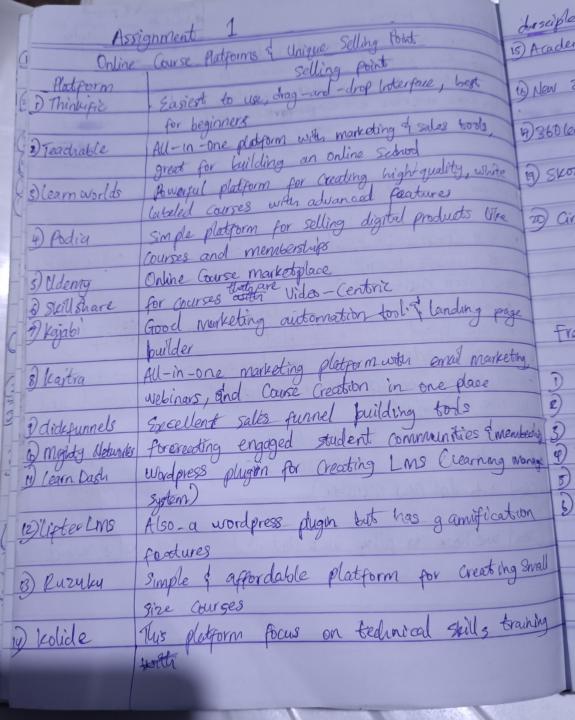 Assignment 1
① Online Course Platforms & Unique Selling Point
Platform selling point
1) Thinkific Easiest to use, drag-and-drop interface, best
for beginners
2) Teachable All-in-one platform with marketing & sales tools,
great for building an online school
3) Learnworlds Powerful platform for creating high quality, white
labeled courses with advanced features
4) Podia Simple platform for selling digital products like
courses and memberships
5) Udemy Online Course marketplace
6) Skillshare for courses that are Video-Centric
7) Kajabi Good marketing automation tool & landing page
builder
8) Kartra All-in-one marketing platform with email marketing
webinars, and Course Creation in one place
9) clickfunnels Excellent sales funnel building tools
10) Mighty Networks for creating engaged student communities & membership
11) Learn Dash Wordpress plugin for Creating LMS (Learning Manage
System)
12) Lifter Lms Also a wordpress plugin but has gamification
features
13) Ruzuku Simple & affordable platform for creating small
size courses
14) Kolide This platform focus on technical skills training
15) Academ
16) New
17) 360 lea
19) Sko
20) Cir
Fra
①
②
③
④
⑤
⑥